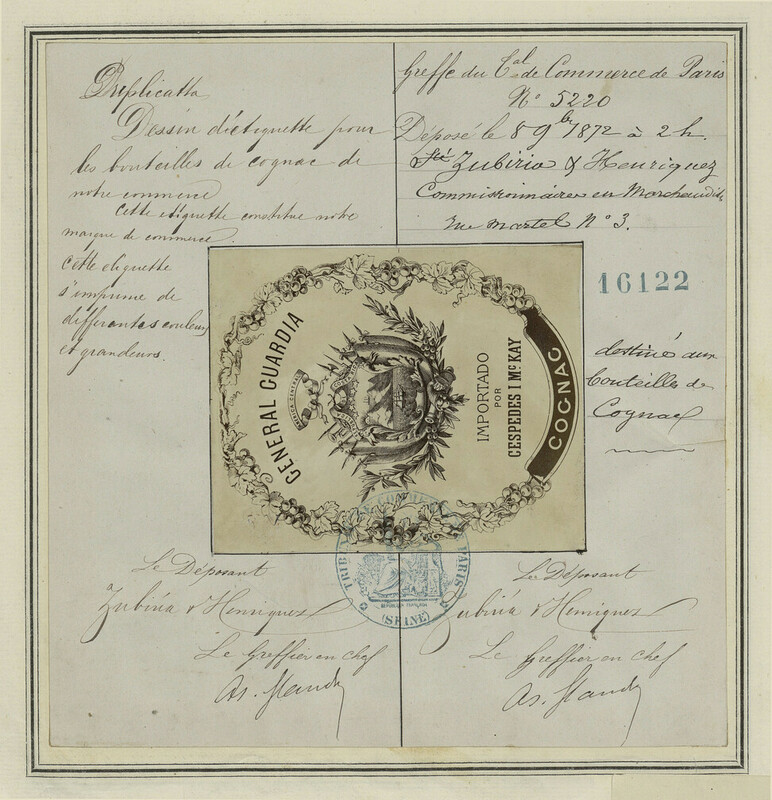 Duplicatta
Dessin d'etiquette pour
les bouteilles de cognac de
notre commerce
Cette etiquette constitue notre
marque de commerce.
Cette etiquette
s'imprime de
differantes couleurs
et grandeurs.
Greffe du Cal de Commerce de Paris
N° 5220
Déposé le 8 9bre 1872 à 2 h.
Sté Zubiria & Henriquez
Commissionnaires en Marchandises
rue Martel N° 3.
16122
destiné aux
bouteilles de
Cognac
GENERAL GUARDIA
AMERICA CENTRAL
IMPORTADO
POR
CESPEDES I McKAY
COGNAC
TRIBUNAL DE COMMERCE PARIS
REPUBLIQUE FRANÇAISE
(SEINE)
Le Déposant
Zubiria & Henriquez
Le Greffier en chef
Le Déposant
Zubiria & Henriquez
Le Greffier en chef